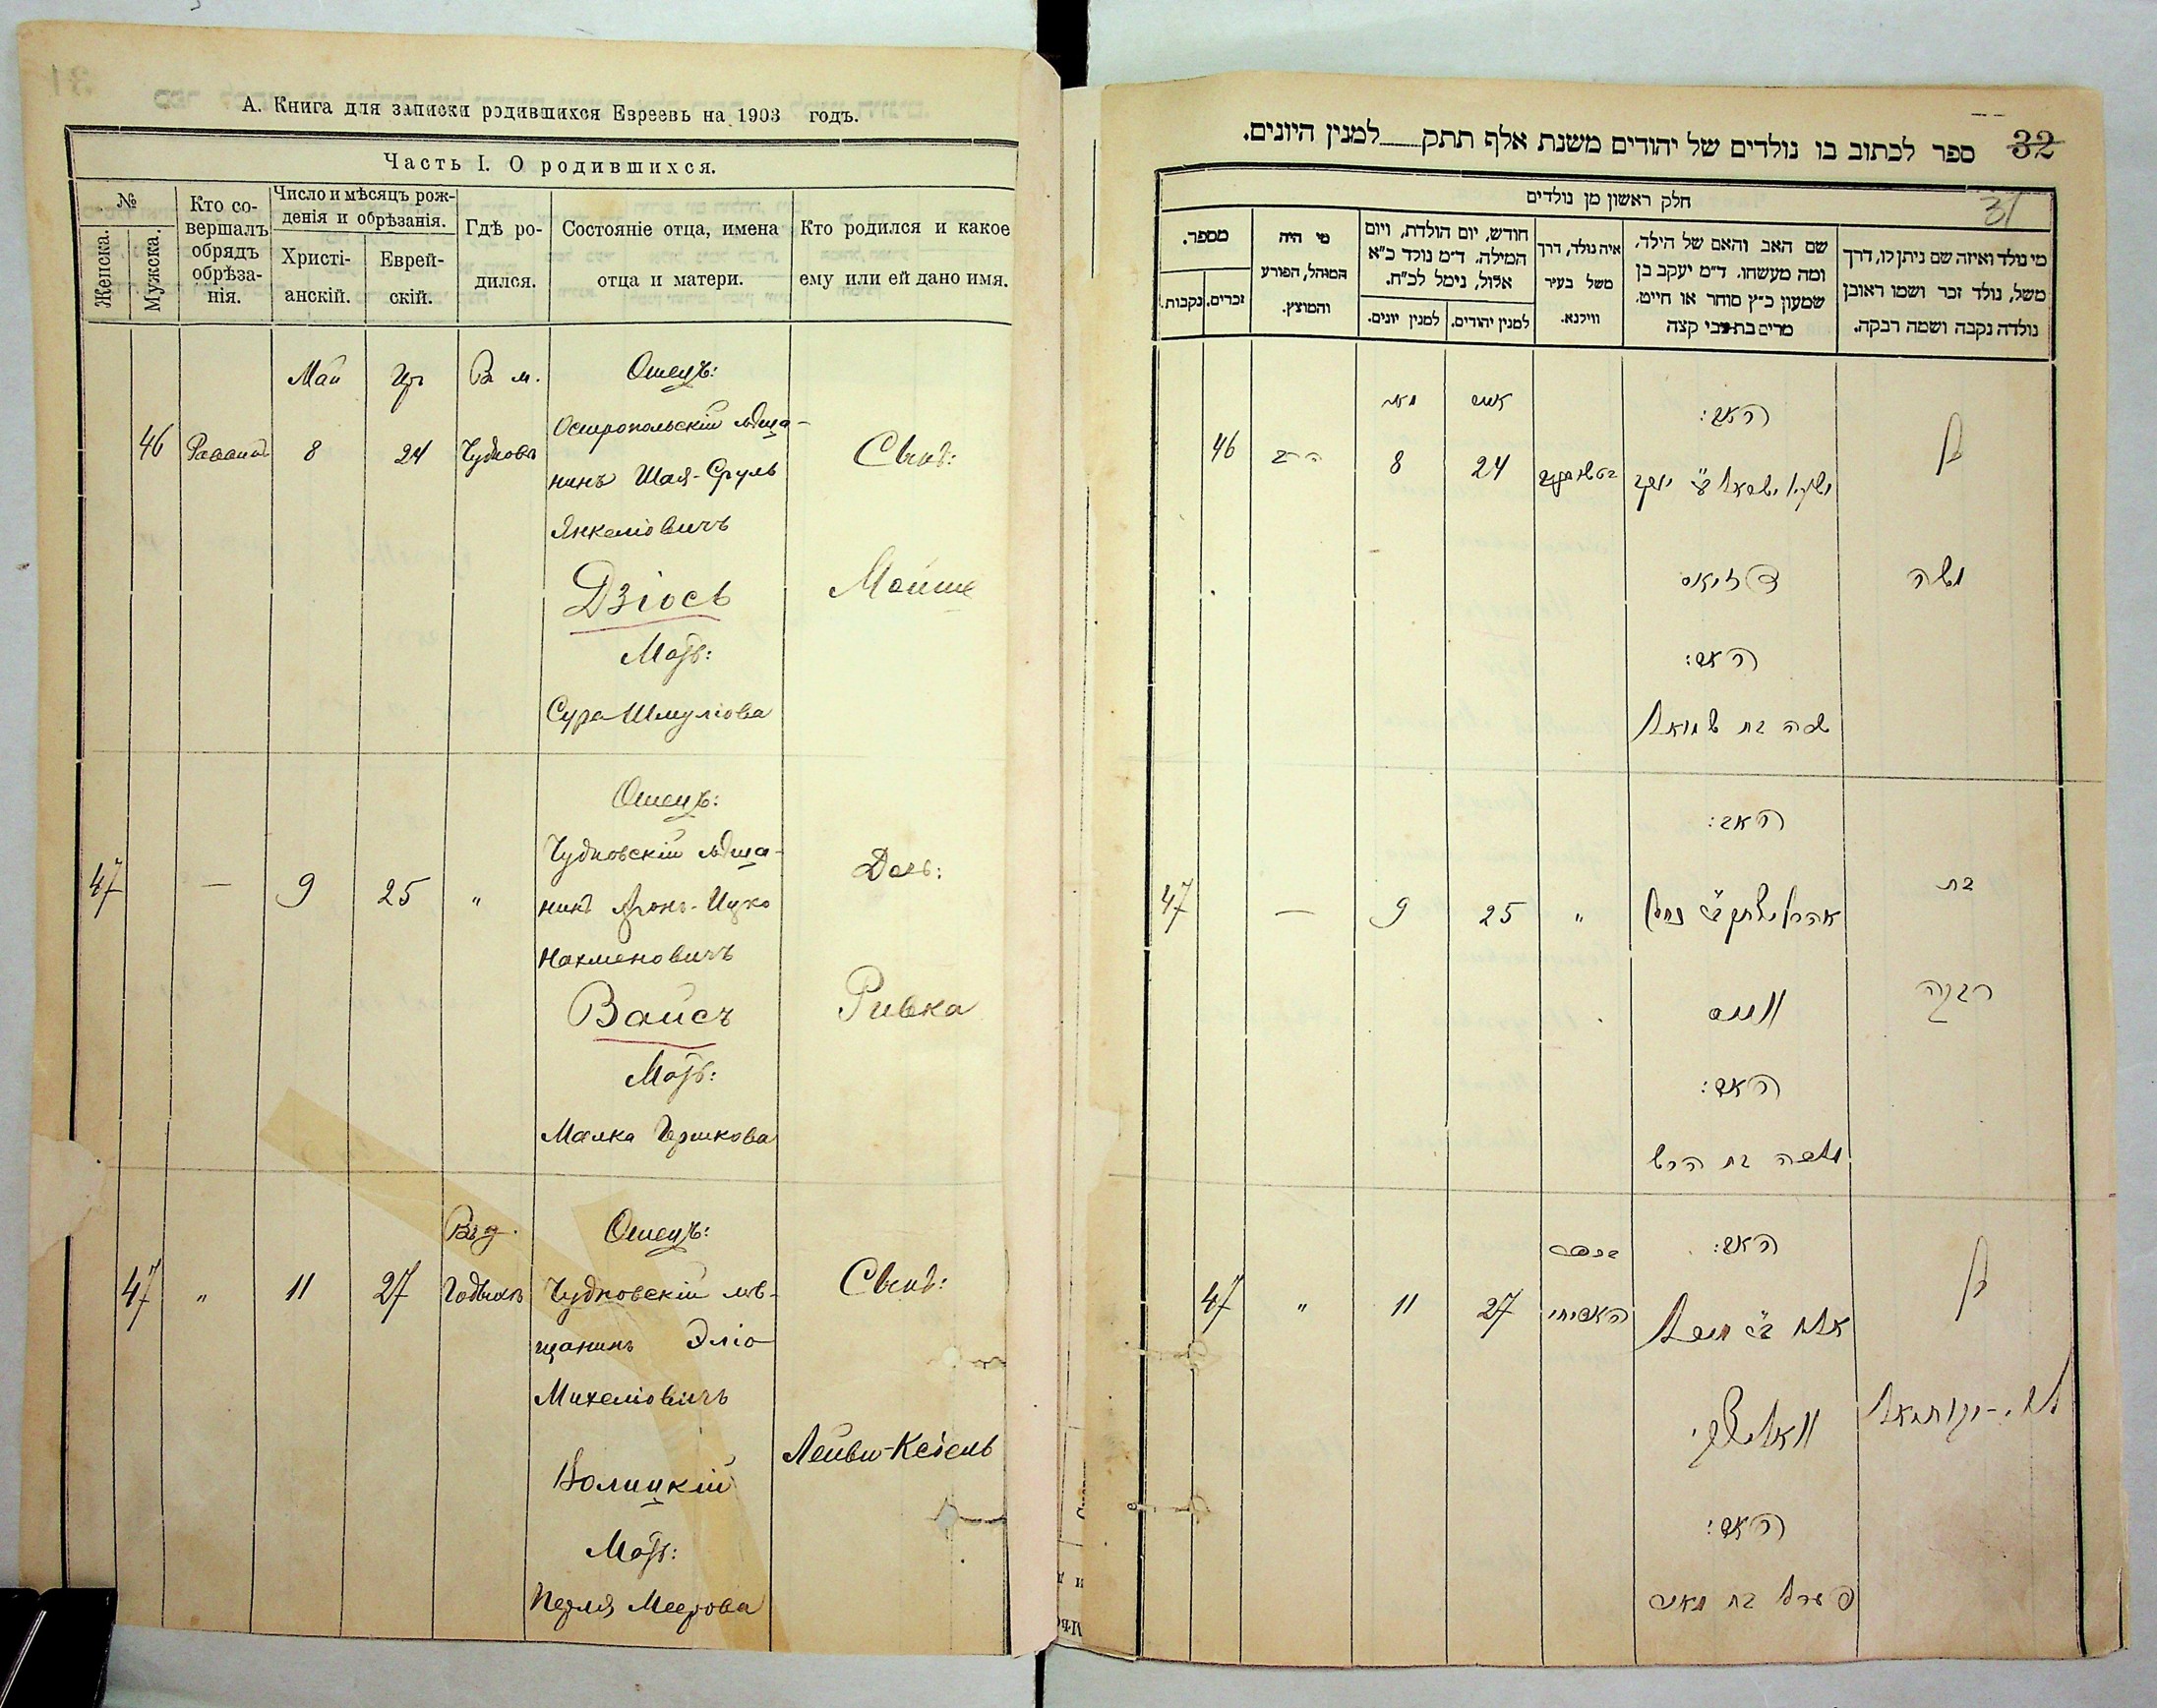 31
А. Книга для записки родившихся Евреевъ на 1903 годъ.
Часть I. О родившихся.
№
Женска.
Мужска.
Кто со-
вершалъ
обрядъ
обрѣза-
нія.
Число и мѣсяцъ рож-
денія и обрѣзанія.
Христі-
анскій.
Еврей-
скій.
Гдѣ ро-
дился.
Состояніе отца, имена
отца и матери.
Кто родился и какое
ему или ей дано имя.
Май
Ір
Въ м.
Отецъ:
46
Раввинъ
8
24
Чудновъ
Остропольскій мѣща-
нинъ Шая-Сруль
Янкеліовичъ
Дзіось
Мать:
Сура Шмуліова
Сынъ:
Мойше
Отецъ:
47
—
9
25
"
Чудновскій мѣща-
нинъ Аронъ-Ицко
Нахменовичъ
Вайсъ
Мать:
Малка Гершкова
Дочь:
Ривка
Отецъ:
47
"
11
27
Чудновскій мѣ-
щанинъ Эліо
Михеліовичъ
Волицкій
Мать:
Перля Меерова
Сынъ:
32
31
ספר לכתוב בו נולדים של יהודים משנת אלף תתק למנין היונים.
חלק ראשון מן נולדים
מספר.
זכרים.
נקבות.
מי היה
המוהל, הפורע
והמוצץ.
חודש, יום הולדת, ויום
המילה. ד״מ נולד כ״א
אלול, נימל לכ״ח.
למנין יונים.
למנין יהודים.
איה נולד, דרך
משל בעיר
ווילנא.
שם האב והאם של הילד,
ומה מעשהו. ד״מ יעקב בן
שמעון כ״ץ סוחר או חייט,
מרים בת צבי קצה
מי נולד ואיזה שם ניתן לו, דרך
משל, נולד זכר ושמו ראובן
נולדה נקבה ושמה רבקה.
מאי
אייר
האב:
46
הרב
8
24
ישעי׳ ישראל ב״ר יעקב
בן
משה
האם:
שרה בת שמואל
האב:
47
—
9
25
"
אהרן יצחק ב״ר נחמן
ווייס
האם:
מלכה בת הרש
בת
רבקה
האב:
47
"
11
27
אלי׳ ב״ר מיכל
וואליצקי
האם:
פערל בת מאיר
בן